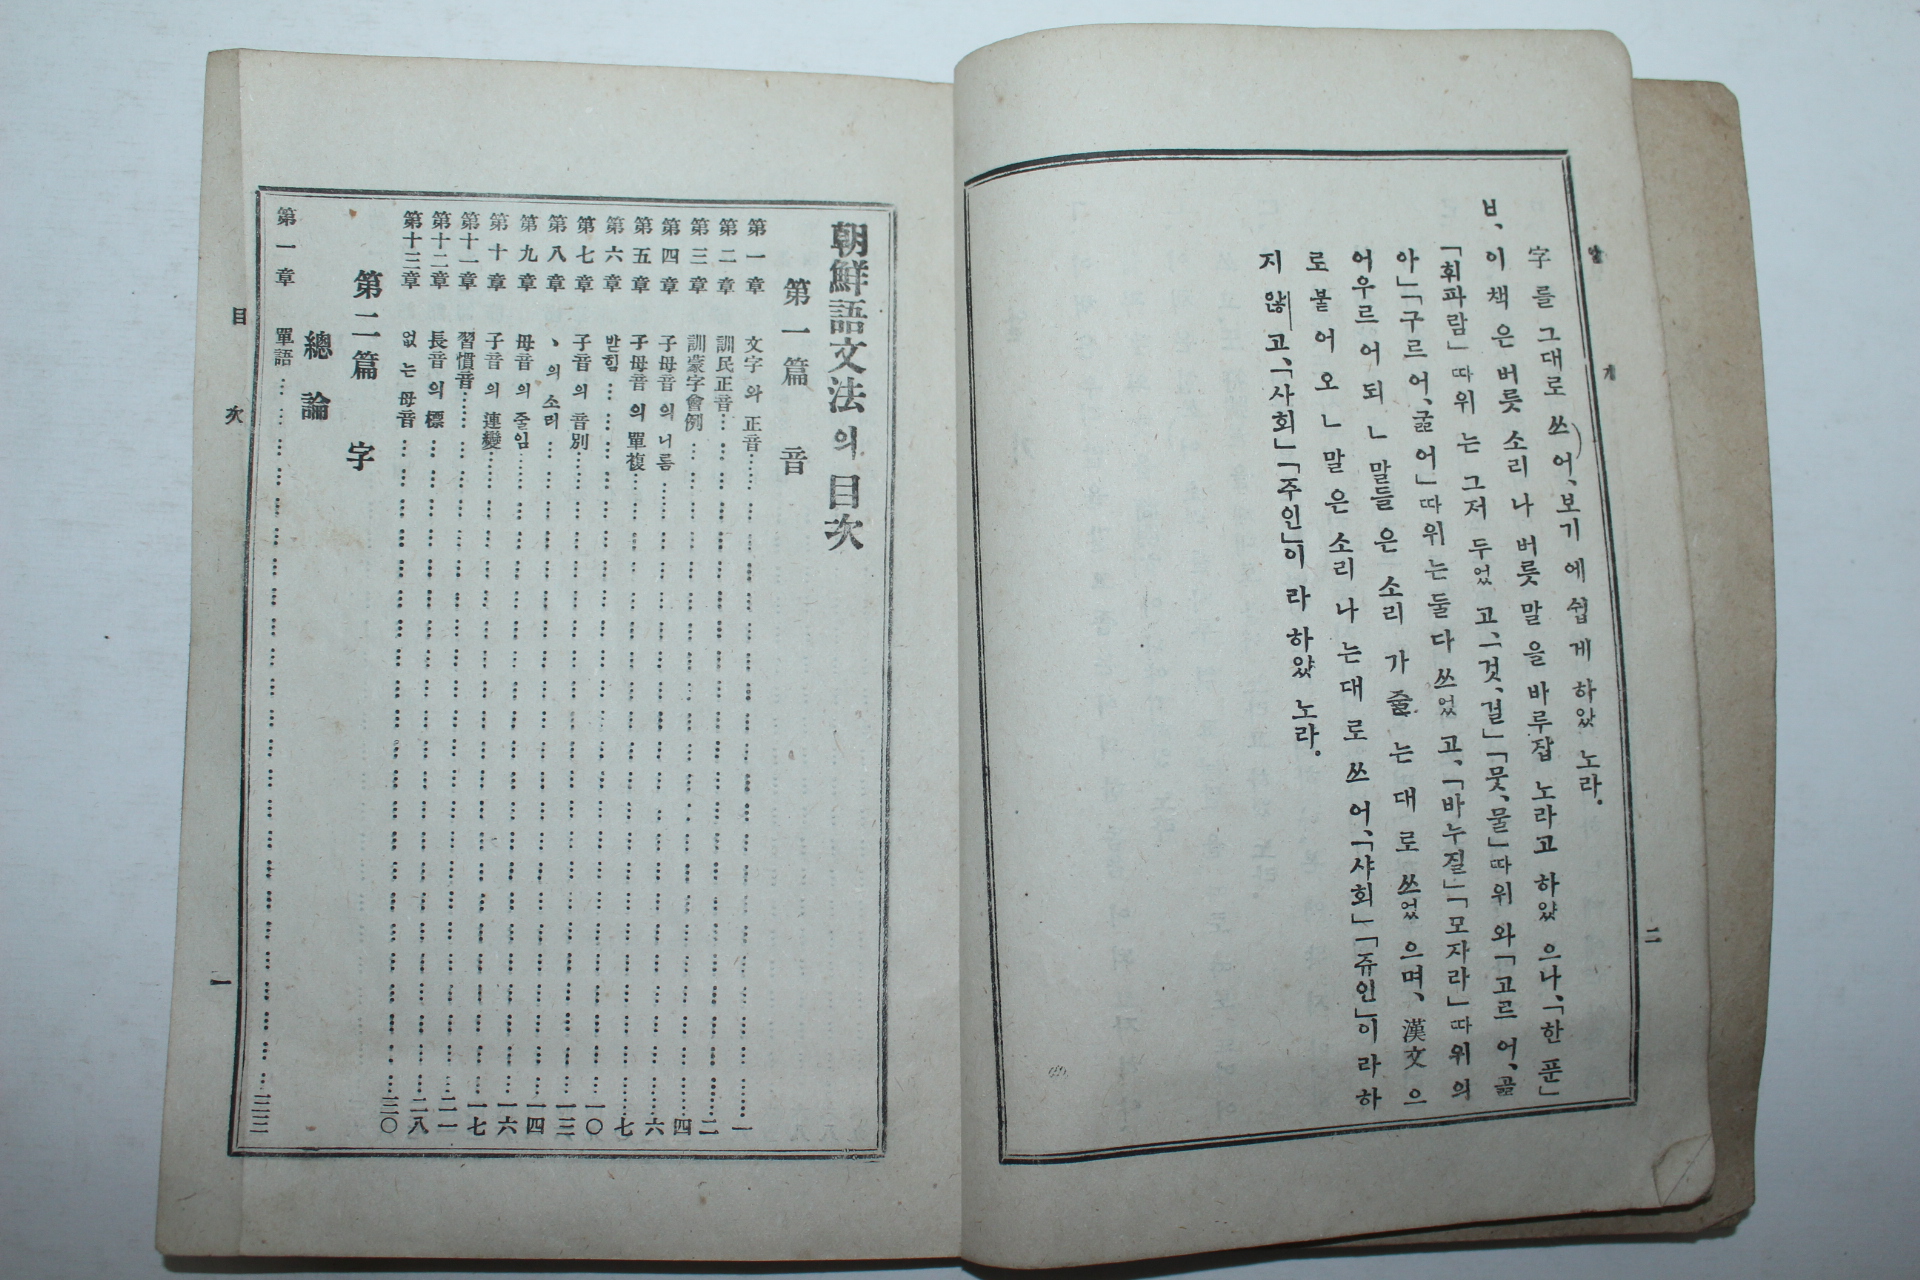 알 기
二
字를 그대로 쓰어, 보기에 쉽게 하았 노라.
ㅂ, 이 책 은 버릇 소리 나 버릇 말 을 바루잡 노라고 하얐 으나, 「한 푼」
「휘파람」 따위 는 그저 두었 고, 「것, 걸」 「뭇, 물」 따위 와 「고르 어, 곮
아」 「구르 어, 굶 어」 따위 는 둘 다 쓰었 고, 「바누질」 「모자라」 따위 의
어우르어 되ㄴ 말들 은 소리 가 줄 는 대 로 쓰었 으며, 漢文 으
로 붙어 오ㄴ 말 은 소리 나 는 대 로 쓰 어, 「샤회」 「쥬인」이 라 하
지 않 고, 「사회」 「주인」이 라 하얐 노라.
朝鮮語文法의 目次
第一篇 音
第一章 文字와 正音 一
第二章 訓民正音 二
第三章 訓蒙字會例 四
第四章 子母音의 니름 六
第五章 子母音의 單複 七
第六章 받힘 一〇
第七章 子音의 音別 一三
第八章 ㆍ의 소리 一四
第九章 母音의 줄임 一六
第十章 子音의 連變 一七
第十一章 習慣音 二一
第十二章 長音의 標 二八
第十三章 없는 母音 三〇
第二篇 字
總論
第一章 單語 三三
目次
一